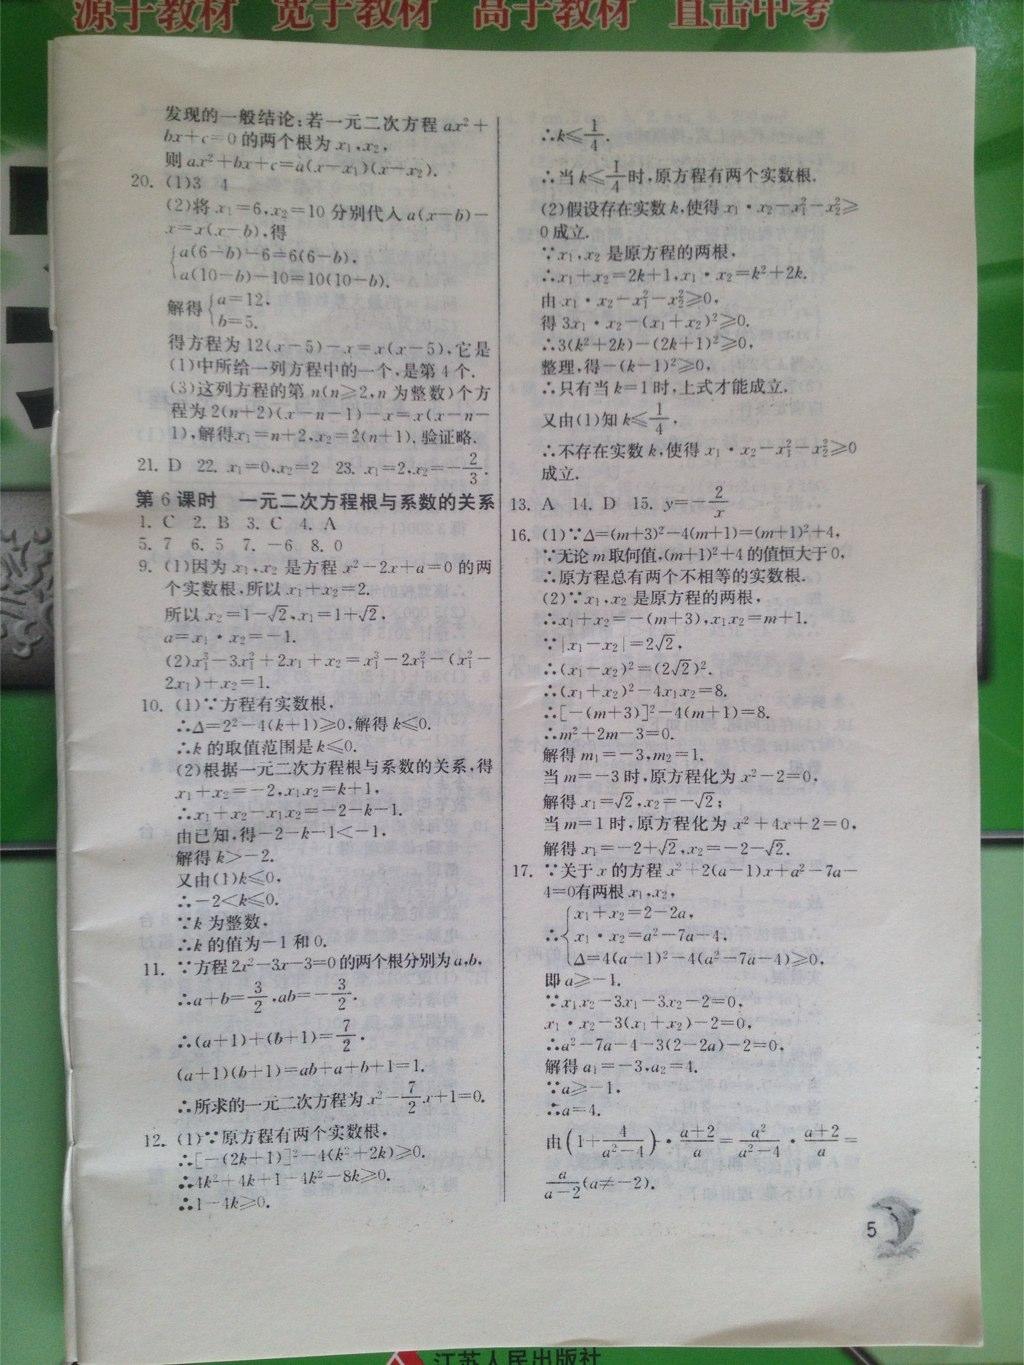 源于教材 宽于教材 高于教材 直击中考
发现的一般结论:若一元二次方程 ax²+
bx+c=0 的两个根为 x₁,x₂,
则 ax²+bx+c=a(x-x₁)(x-x₂).
20. (1)3 4
(2)将 x₁=6,x₂=10 分别代入 a(x-b)-
x=x(x-b),得
{a(6-b)-6=6(6-b),
a(10-b)-10=10(10-b).
解得{a=12,
b=5.
得方程为 12(x-5)-x=x(x-5),它是
(1)中所给一列方程中的一个,是第 4 个.
(3)这列方程的第 n(n≥2,n 为整数)个方
程为 2(n+2)(x-n-1)-x=x(x-n-
1),解得x₁=n+2,x₂=2(n+1). 验证略.
21. D 22. x₁=0,x₂=2 23. x₁=2,x₂=-2/3.
第 6 课时 一元二次方程根与系数的关系
1. C 2. B 3. C 4. A
5. 7 6. 5 7. -6 8. 0
9. (1)因为 x₁,x₂ 是方程 x²-2x+a=0 的两
个实数根,所以 x₁+x₂=2.
所以 x₂=1-√2,x₁=1+√2,
a=x₁·x₂=-1.
(2)x₁³-3x₁²+2x₁+x₂=x₁³-2x₁²-(x₁²-
2x₁)+x₂=1.
10. (1)∵方程有实数根,
∴Δ=2²-4(k+1)≥0,解得 k≤0.
∴k 的取值范围是 k≤0.
(2)根据一元二次方程根与系数的关系,得
x₁+x₂=-2,x₁x₂=k+1,
∴x₁+x₂-x₁x₂=-2-k-1.
由已知,得-2-k-1<-1,
解得 k>-2.
又由(1)k≤0,
∴-2<k≤0.
∵k 为整数,
∴k 的值为-1 和 0.
11. ∵方程 2x²-3x-3=0 的两个根分别为 a,b,
∴a+b=3/2,ab=-3/2.
∴(a+1)+(b+1)=7/2,
(a+1)(b+1)=ab+a+b+1=1.
∴所求的一元二次方程为 x²-7/2x+1=0.
12. (1)∵原方程有两个实数根,
∴[-(2k+1)]²-4(k²+2k)≥0.
∴4k²+4k+1-4k²-8k≥0.
∴1-4k≥0.
∴k≤1/4.
∴当 k≤1/4时,原方程有两个实数根.
(2)假设存在实数 k,使得 x₁·x₂-x₁²-x₂²≥
0 成立.
∵x₁,x₂ 是原方程的两根,
∴x₁+x₂=2k+1,x₁·x₂=k²+2k.
由 x₁·x₂-x₁²-x₂²≥0,
得 3x₁·x₂-(x₁+x₂)²≥0.
∴3(k²+2k)-(2k+1)²≥0,
整理,得-(k-1)²≥0,
∴只有当 k=1 时,上式才能成立.
又由(1)知 k≤1/4,
∴不存在实数 k,使得 x₁·x₂-x₁²-x₂²≥0
成立.
13. A 14. D 15. y=-2/x
16. (1)∵Δ=(m+3)²-4(m+1)=(m+1)²+4,
∵无论 m 取何值,(m+1)²+4 的值恒大于 0,
∴原方程总有两个不相等的实数根.
(2)∵x₁,x₂ 是原方程的两根,
∴x₁+x₂=-(m+3),x₁x₂=m+1.
∵|x₁-x₂|=2√2,
∴(x₁-x₂)²=(2√2)².
∴(x₁+x₂)²-4x₁x₂=8.
∴[-(m+3)]²-4(m+1)=8.
∴m²+2m-3=0.
解得 m₁=-3,m₂=1.
当 m=-3 时,原方程化为 x²-2=0,
解得 x₁=√2,x₂=-√2;
当 m=1 时,原方程化为 x²+4x+2=0,
解得 x₁=-2+√2,x₂=-2-√2.
17. ∵关于 x 的方程 x²+2(a-1)x+a²-7a-
4=0有两根 x₁,x₂,
∴{x₁+x₂=2-2a,
x₁·x₂=a²-7a-4,
Δ=4(a-1)²-4(a²-7a-4)≥0,
即 a≥-1.
∵x₁x₂-3x₁-3x₂-2=0,
x₁·x₂-3(x₁+x₂)-2=0,
∴a²-7a-4-3(2-2a)-2=0,
解得 a₁=-3,a₂=4.
∵a≥-1,
∴a=4.
由(1+4/(a²-4))·(a+2)/a=a²/(a²-4)·(a+2)/a=
a/(a-2)(a≠-2).
5
江苏人民出版社